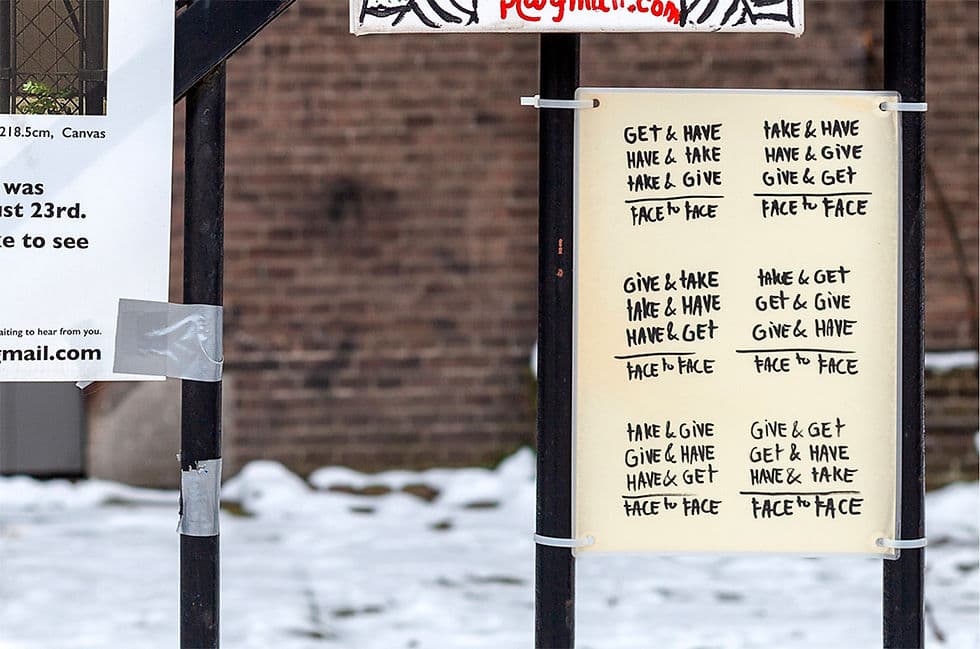 218.5cm, Canvas
was
st 23rd.
e to see
aiting to hear from you.
gmail.com
GEt & HAVE
HAVE & tAKE
tAKE & GiVE
FACE to FACE
tAKE & HAVE
HAVE & GiVE
GiVE & GEt
FACE to FACE
GiVE & tAKE
tAKE & HAVE
HAVE & GEt
FACE to FACE
tAKE & GEt
GEt & GiVE
GiVE & HAVE
FACE to FACE
tAKE & GiVE
GiVE & HAVE
HAVE & GEt
FACE to FACE
GiVE & GEt
GEt & HAVE
HAVE & tAKE
FACE to FACE